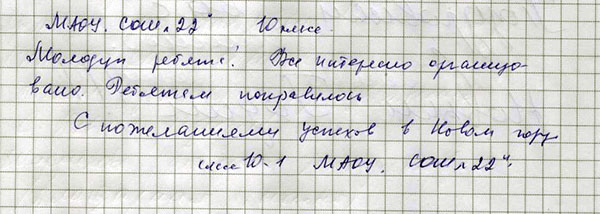 МАОУ. СОШ „22" 10 класс.
Молодцы ребята! Все интересно организо-
вано. Ребятам понравилось
С пожеланиями успехов в Новом году
класс 10-1 МАОУ. СОШ „22".